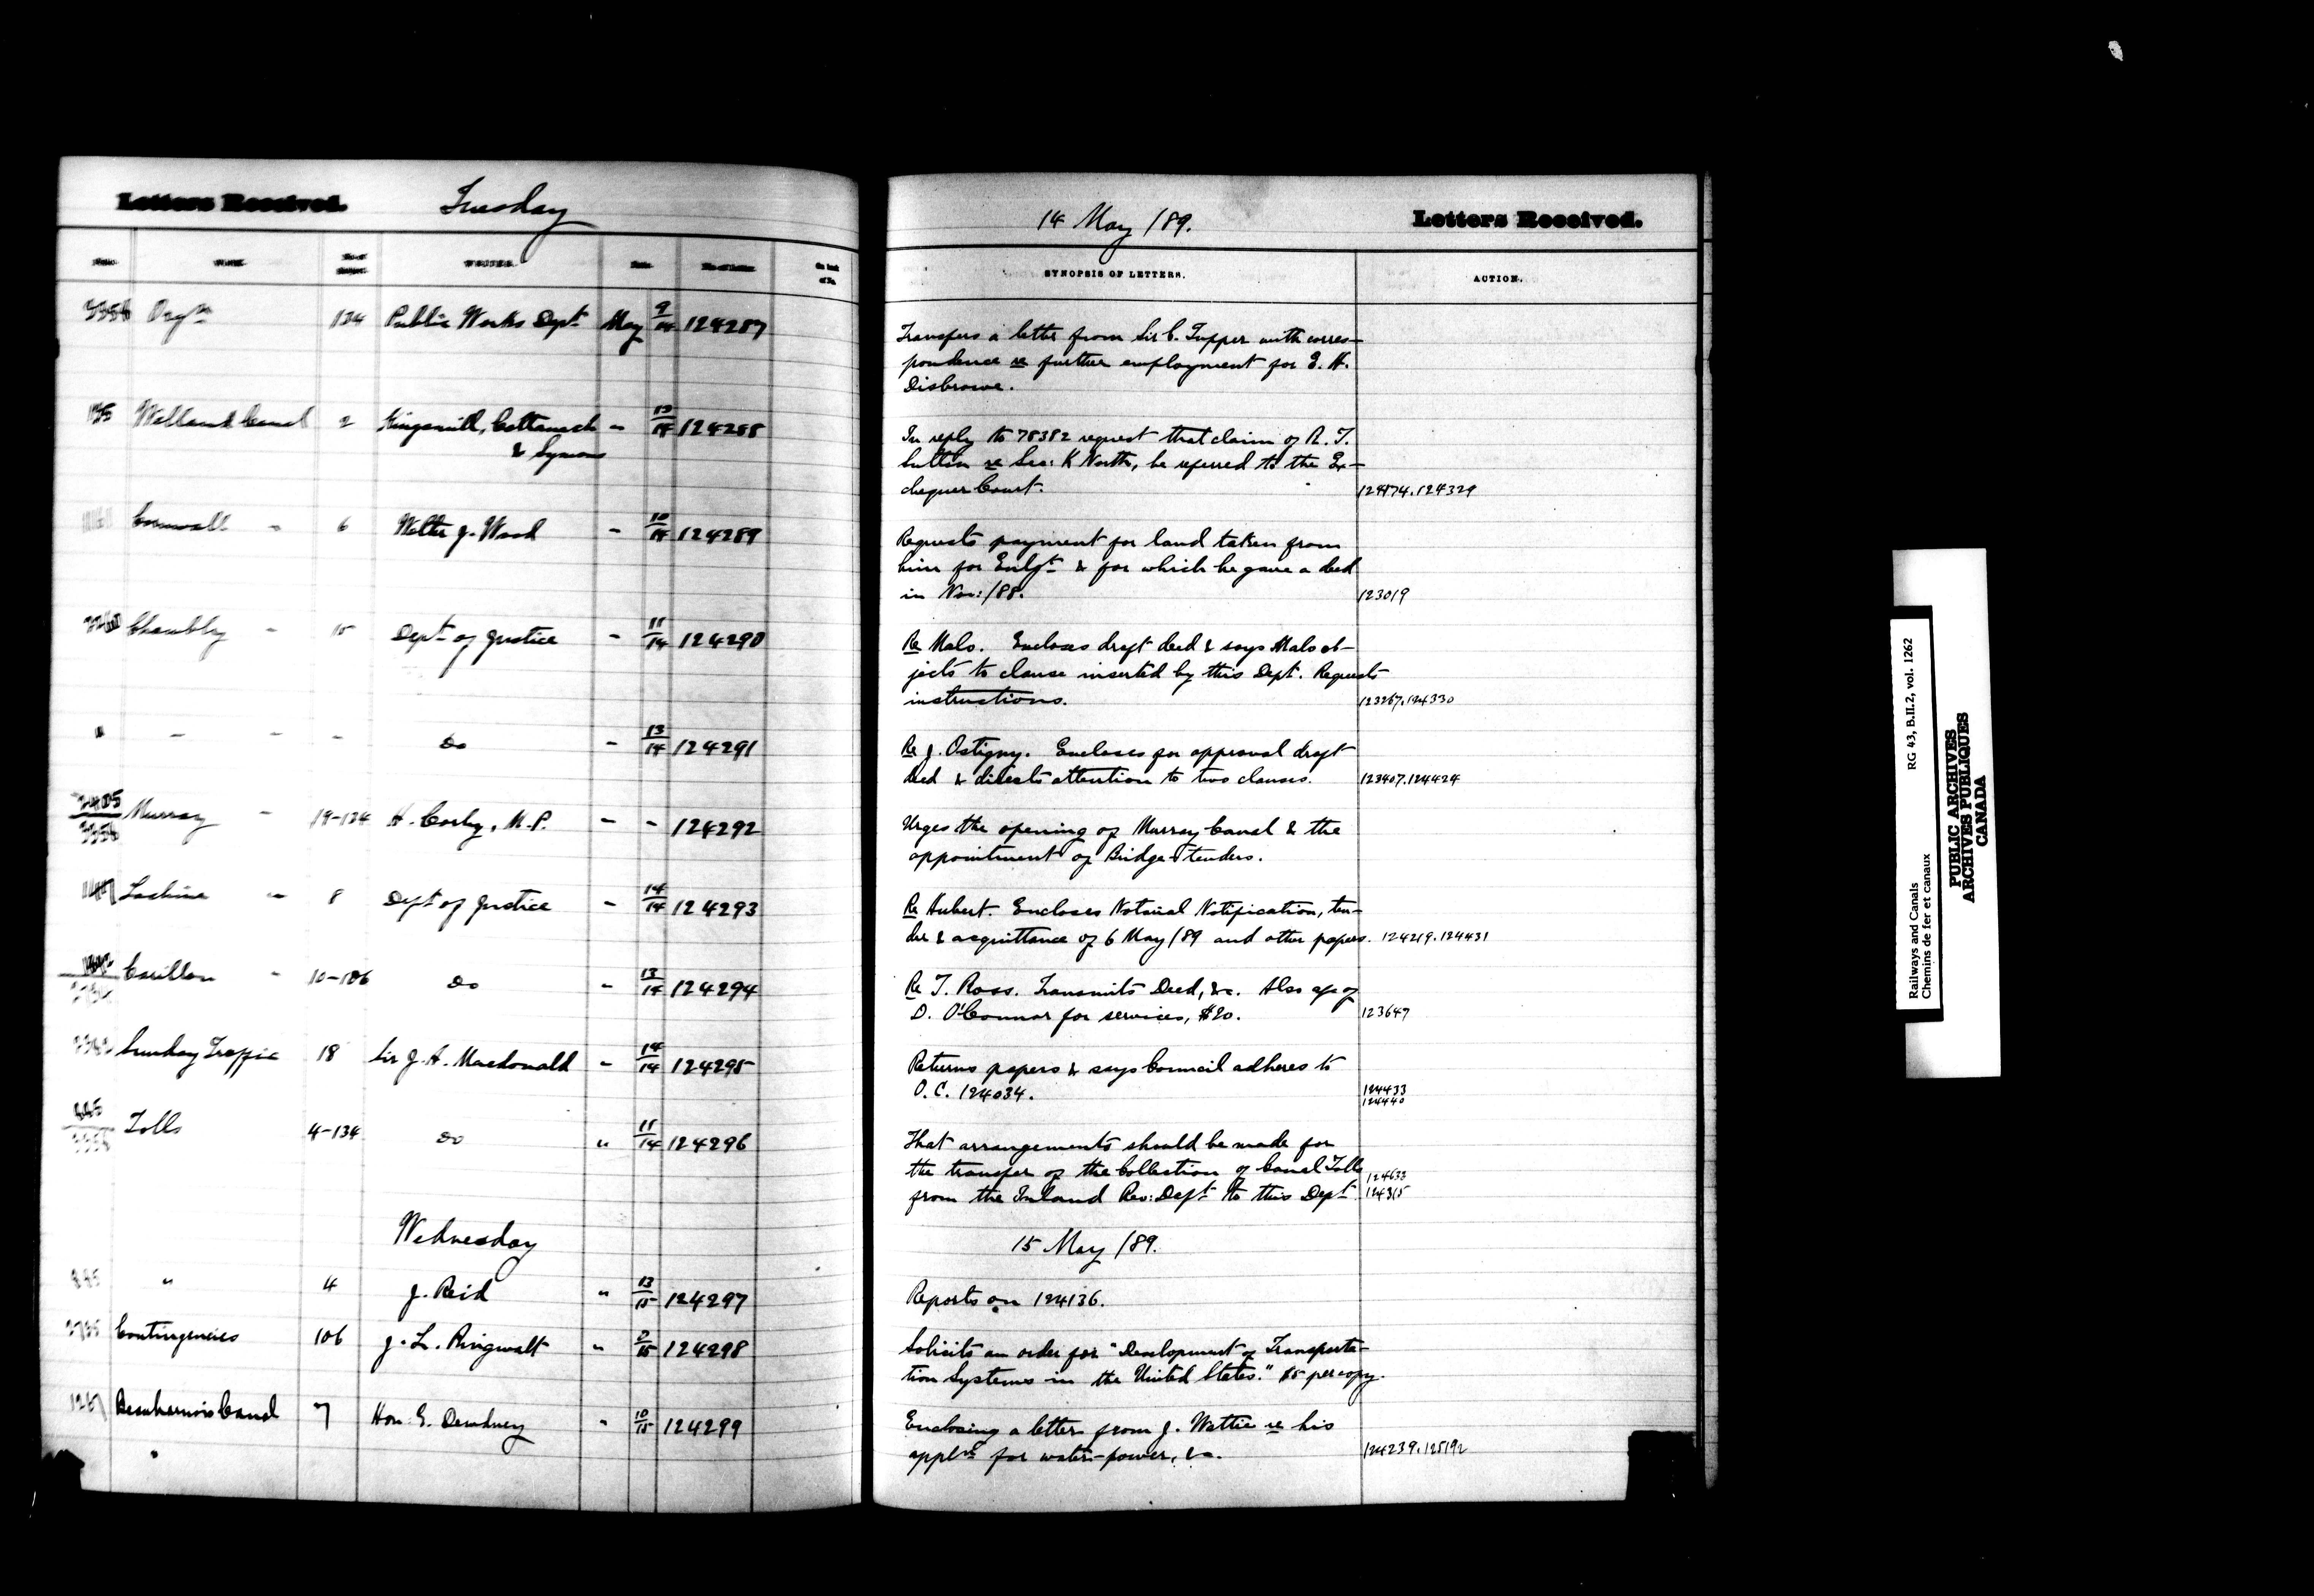 Letters Received. Tuesday
WRITER.
Orgn 134 Public Works Dept May 9/14 124287
Welland Canal 2 Kingsmill, Cattanach - 13/14 124288
& Symons
Cornwall " 6 Walter J. Wood - 10/14 124289
Chambly - 15 Dept of Justice - 11/14 124290
" - - - Do - 13/14 124291
Murray - 19-134 H. Corby, M.P. - - 124292
Lachine - 8 Dept of Justice - 14/14 124293
Carillon - 10-106 Do - 13/14 124294
Sunday Traffic 18 Sir J. A. Macdonald - 14/14 124295
Tolls 4-134 Do " 11/14 124296
Wednesday
" 4 J. Reid " 13/15 124297
Contingencies 106 J. L. Ringwalt " /15 124298
Beauharnois Canal 7 Hon. E. Dewdney " 10/15 124299
"
14 May /89. Letters Received.
SYNOPSIS OF LETTERS. ACTION.
Transfers a letter from Sir C. Tupper with corres-
pondence re further employment for E. H.
Disbrowe.
In reply to 78382 request that claim of R. T.
Sutton re Sec: K North, be referred to the Ex-
chequer Court. 124329
Requests payment for land taken from
him for Enlgt & for which he gave a deed
in Nov: /88. 123019
Re Malo. Encloses draft deed & says Malo ob-
jects to clause inserted by this Dept. Requests
instructions. 123267. 124330
Re J. Ostigny. Encloses for approval draft
deed & directs attention to two clauses. 123407. 124424
Urges the opening of Murray Canal & the
appointment of Bridge-tenders.
Re Hubert. Encloses Notarial Notification, ten-
der & acquittance of 6 May /89 and other papers. 124219. 124431
Re T. Ross. Transmits Deed, &c. Also a/c of
D. O'Connor for services, $20. 123647
Returns papers & says Council adheres to
O.C. 124034. 124433
124440
That arrangements should be made for
the transfer of the Collection of Canal Tolls 124633
from the Inland Rev: Dept to this Dept 124315
15 May /89.
Reports on 124136.
Solicits an order for "Development of Transporta-
tion Systems in the United States." $5 per copy.
Enclosing a letter from J. Wattie re his
appln for water-power, &c. 124239. 125192
Railways and Canals RG 43, B.II.2, vol. 1262
Chemins de fer et canaux
PUBLIC ARCHIVES
ARCHIVES PUBLIQUES
CANADA